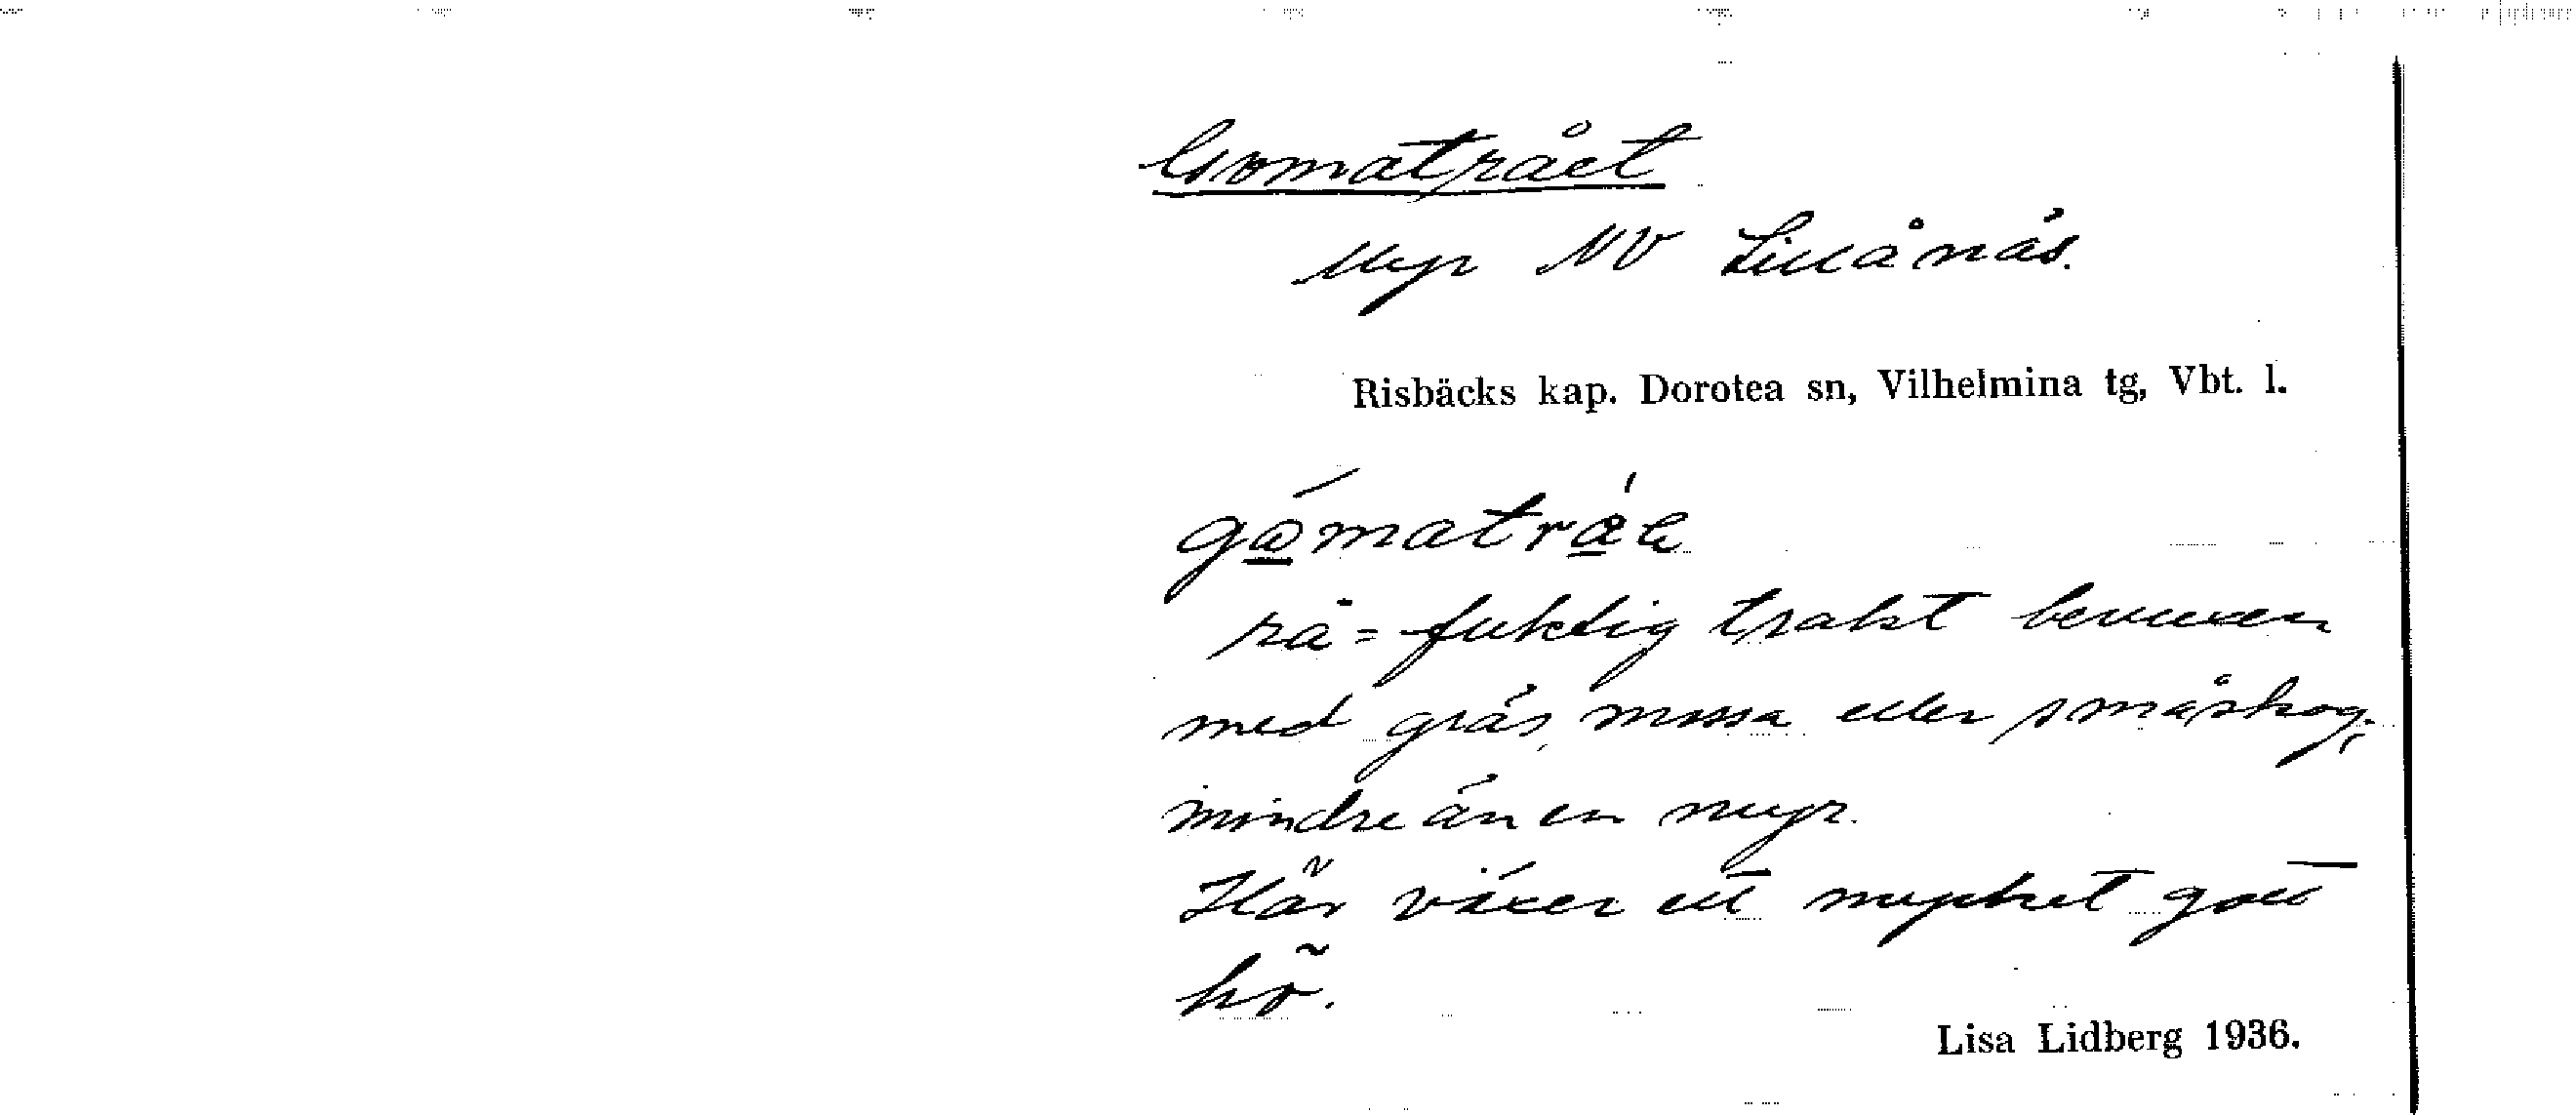 Gomatrået
Myr NV Lillånäs.
Risbäcks kap. Dorotea sn, Vilhelmina tg, Vbt. l.
rå = fuktig trakt bevuxen
med gräs, mossa eller småskog,
mindre än en myr.
Här växer ett mycket gott
hö.
Lisa Lidberg 1936.